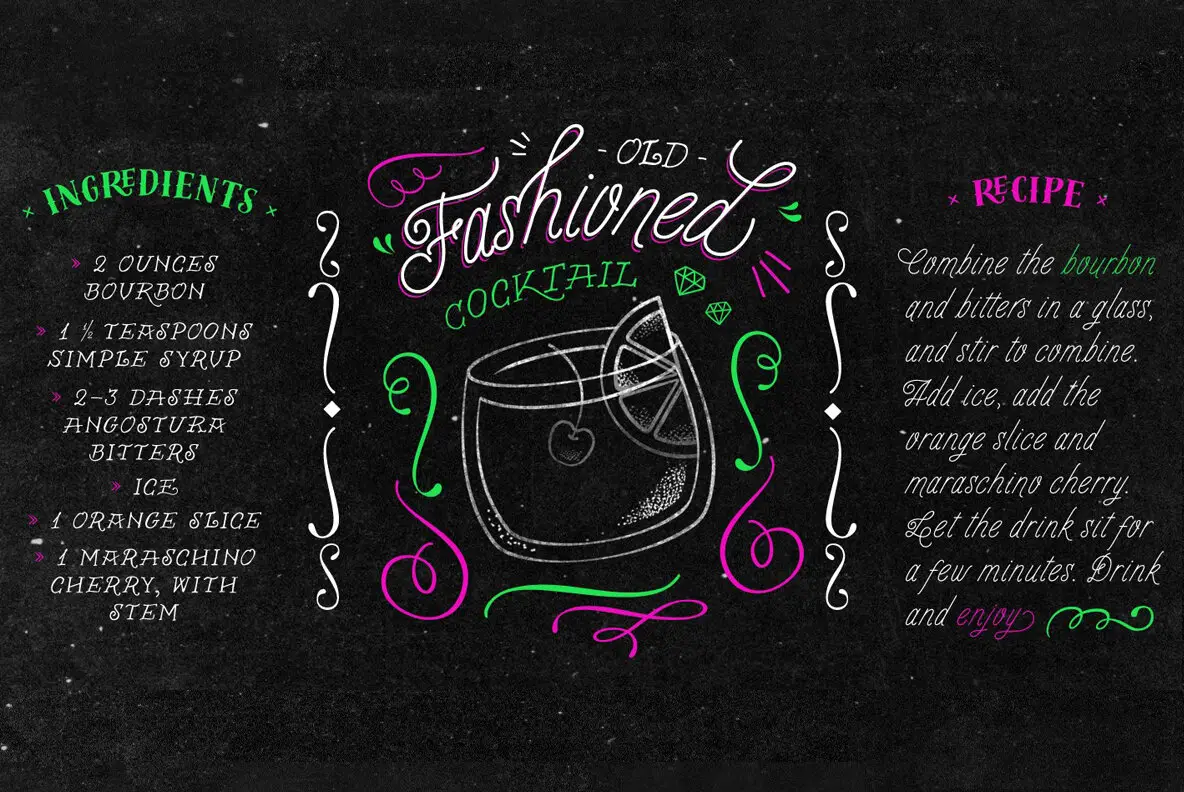 INGREDIENTS
» 2 OUNCES
BOURBON
» 1 ½ TEASPOONS
SIMPLE SYRUP
» 2-3 DASHES
ANGOSTURA
BITTERS
» ICE
» 1 ORANGE SLICE
» 1 MARASCHINO
CHERRY, WITH
STEM
- OLD -
Fashioned
COCKTAIL
RECIPE
Combine the bourbon
and bitters in a glass,
and stir to combine.
Add ice, add the
orange slice and
maraschino cherry.
Let the drink sit for
a few minutes. Drink
and enjoy